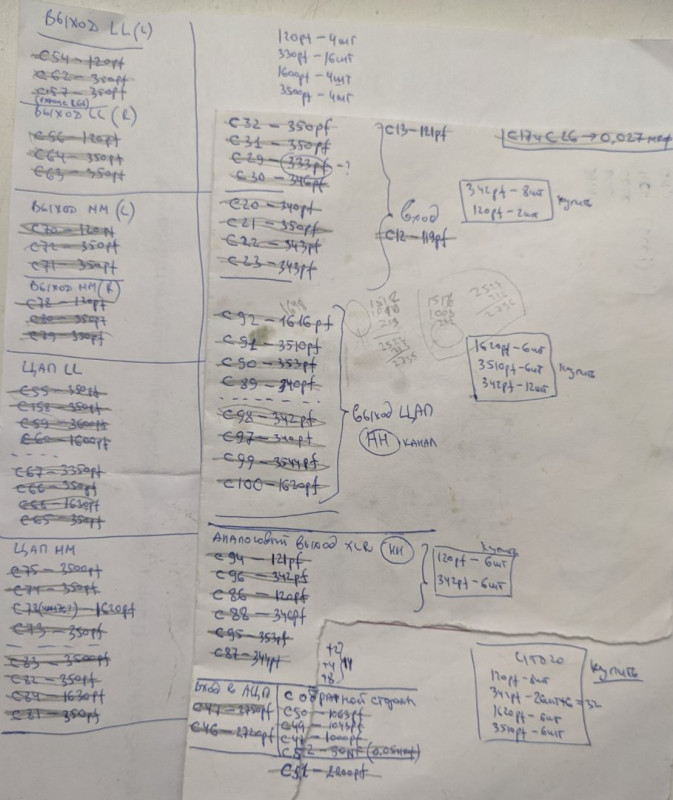 ВЫХОД LL (L)
C54 – 120pf
C62 – 350pf
C57 – 350pf
ВЫХОД LL (R)
C56 – 120pf
C64 – 350pf
C63 – 350pf
ВЫХОД НМ (L)
C70 – 120pf
C72 – 350pf
C71 – 350pf
ВЫХОД НМ (R)
C78 – 120pf
C80 – 350pf
C79 – 350pf
ЦАП LL
C55 – 350pf
C158 – 350pf
C59 – 3600pf
C60 – 1600pf
C67 – 3350pf
C66 – 350pf
1630pf
C65 – 350pf
ЦАП НМ
C75 – 2500pf
C74 – 350pf
1620pf
C73 – 350pf
C83 – 3500pf
C82 – 350pf
C84 – 1630pf
C81 – 350pf
120pf – 4шт
330pf – 16шт
1600pf – 4шт
3500pf – 4шт
C32 – 350pf
C31 – 350pf
C29 – 333pf – ?
C30 – 346pf
C20 – 340pf
C21 – 350pf
C22 – 343pf
C23 – 343pf
C13 – 121pf
Вход
C12 – 119pf
C17 и C26 → 0,027 мкф
342pf – 8шт
120pf – 2шт
купить
C92 – 1616pf
C91 – 3510pf
C90 – 353pf
C89 – 340pf
C98 – 342pf
C97 – 340pf
C99 – 3544pf
C100 – 1620pf
ВЫХОД ЦАП
НН КАНАЛ
1620pf – 6шт
3510pf – 6шт
342pf – 12шт
купить
АНАЛОГОВЫЙ ВЫХОД XLR НН
C94 – 121pf
C96 – 342pf
C86 – 120pf
C88 – 346pf
C95 – 353pf
C87 – 344pf
купить
120pf – 6шт
342pf – 6шт
+2
+4
+8
14
ВХОД В АЦП
C47 – 2750pf
C46 – 2720pf
С ОБРАТНОЙ СТОРОНЫ
C50 – 1063pf
C49 – 1043pf
C41 – 1000pf
C51 – 2200pf
ИТОГО
120pf – 8шт
342pf – 26шт+6 = 32
1620pf – 6шт
3510pf – 6шт
купить